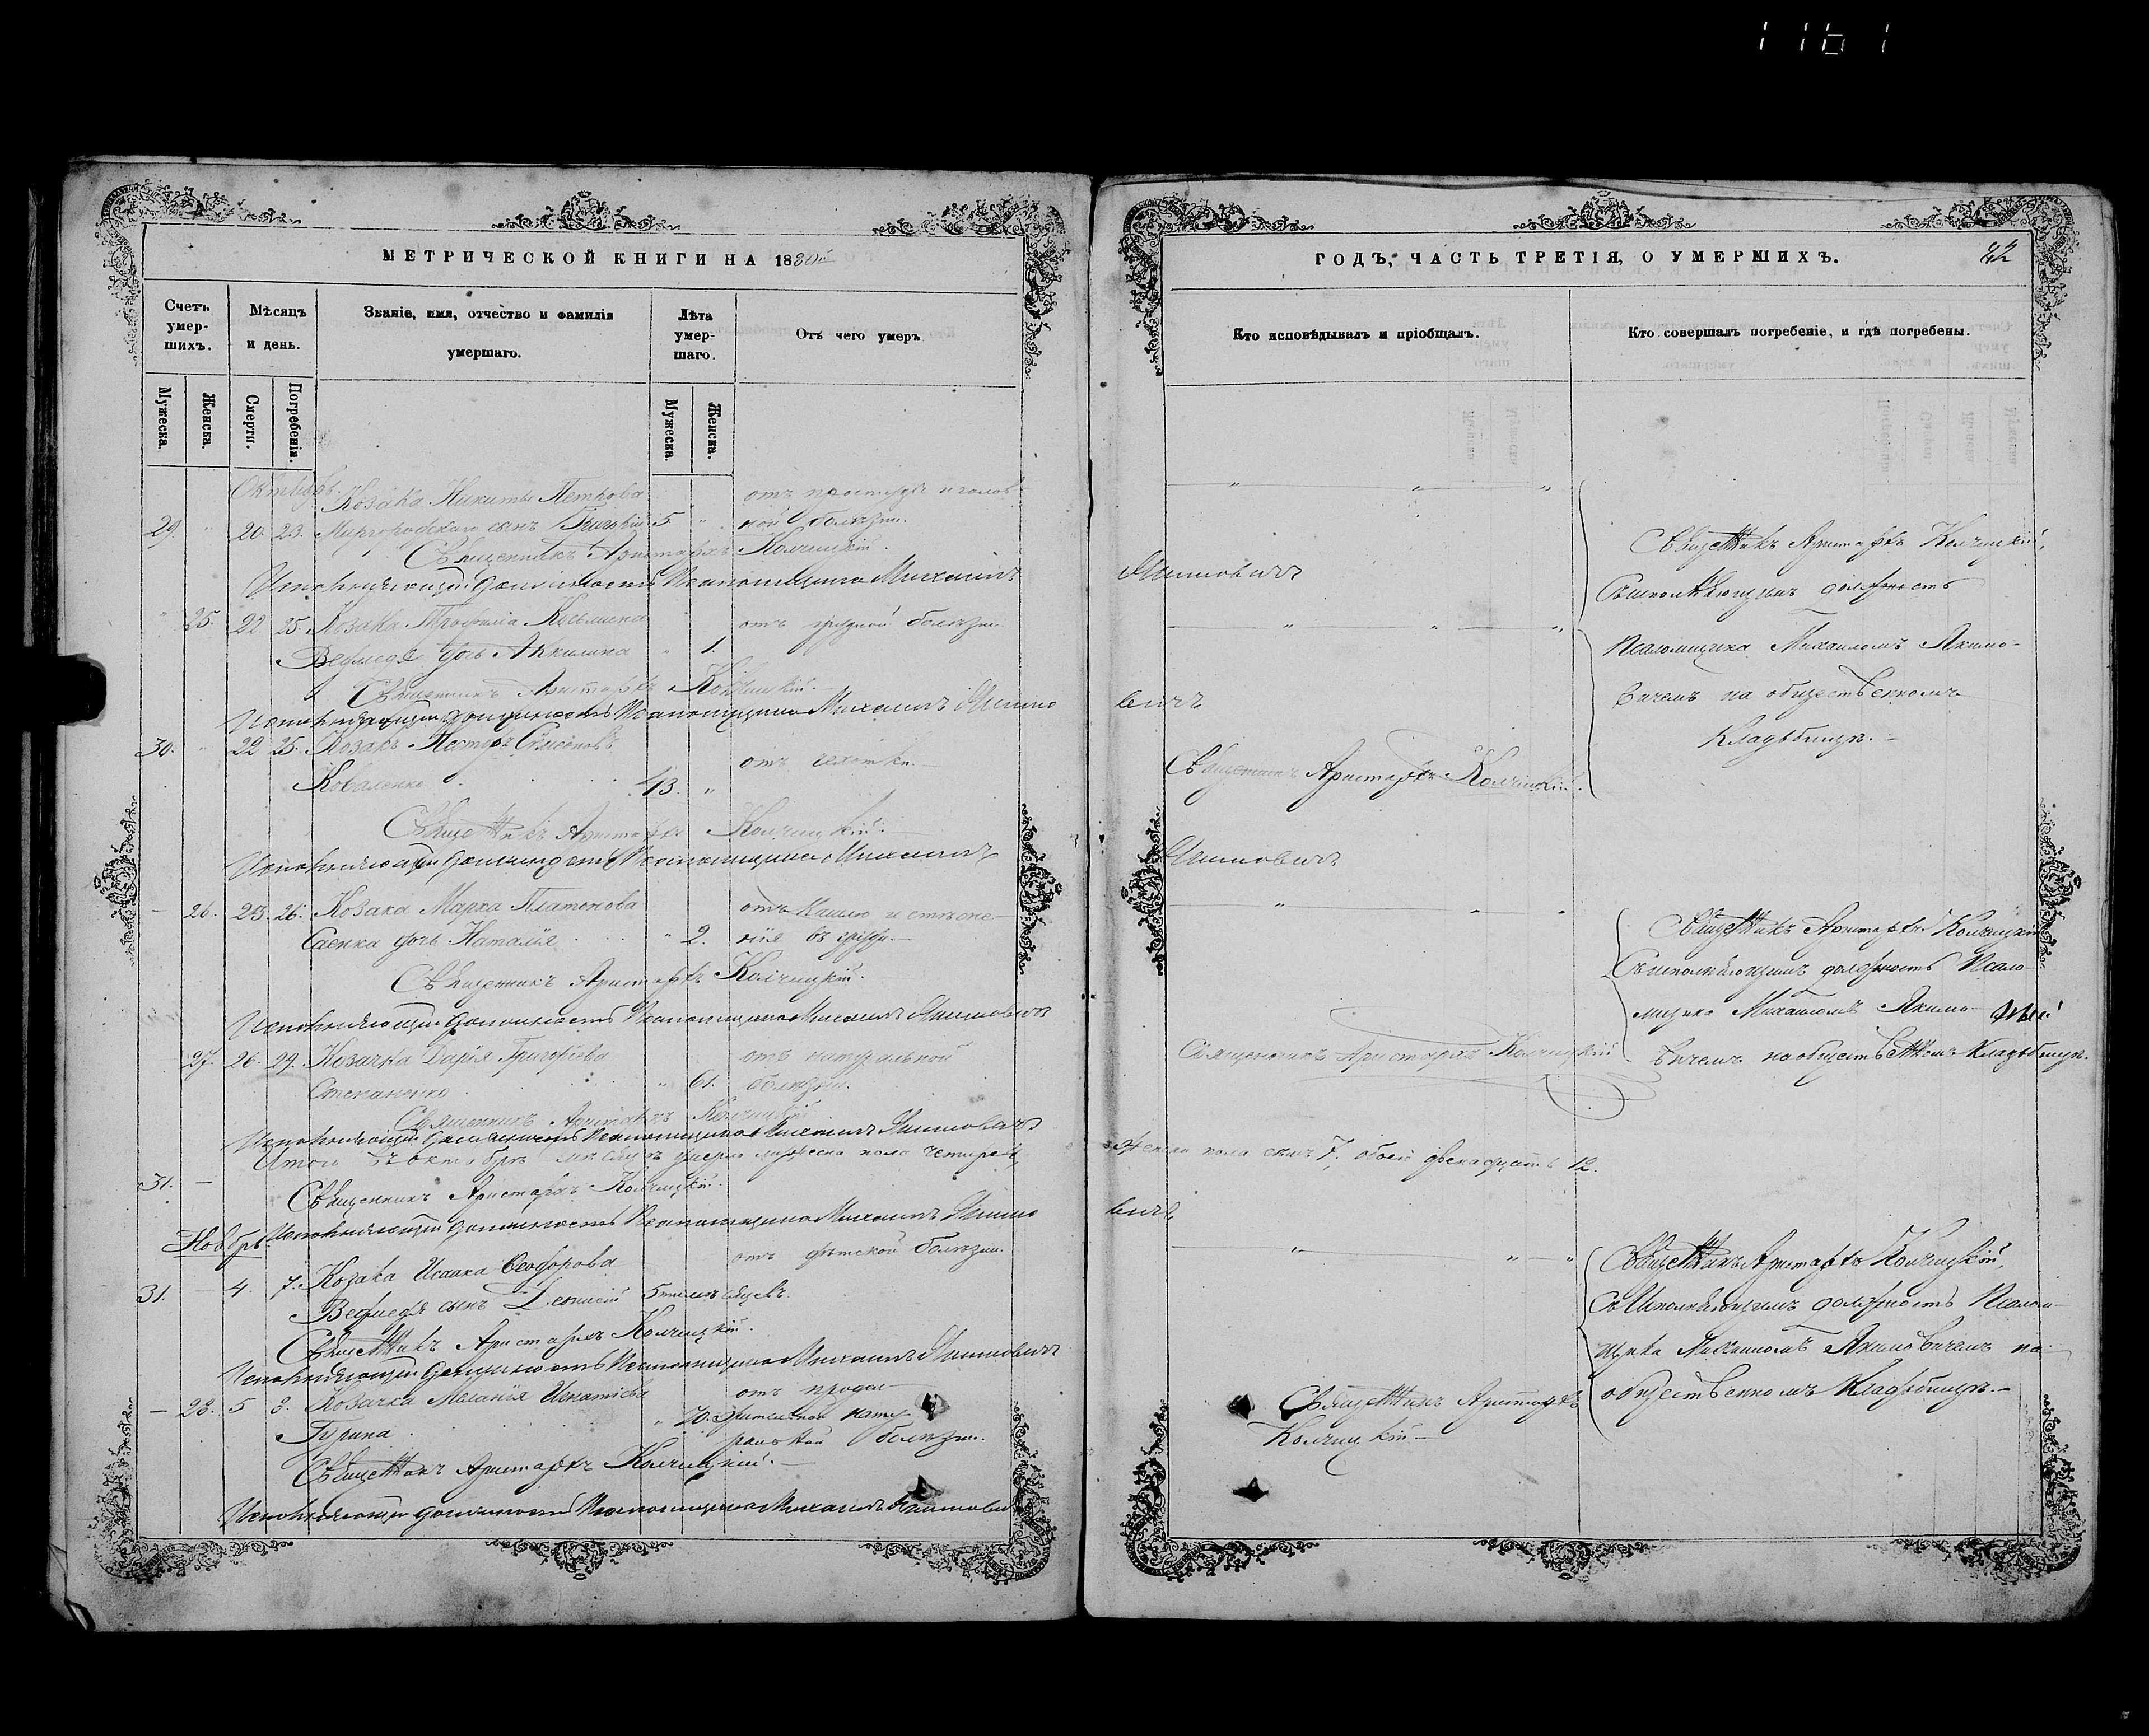 1161
МЕТРИЧЕСКОЙ КНИГИ НА 1880й
Счетъ умер-шихъ.
Мѣсяцъ и день.
Званіе, имя, отчество и фамилія умершаго.
Лѣта умер-шаго.
Отъ чего умеръ
Мужеска.
Женска.
Смерти.
Погребенія.
Мужеска.
Женска.
Октябрь
Козака Никиты Петрова
отъ простуды и голов-
29. " 20. 23. Миргородскаго сынъ 5 " ной болѣзни.
Священникъ Аристархъ Колчицкій.
Исполняющій должность Псаломщика Михаилъ
" 25. 22 25. Козака Трофима Кузьмина
отъ грудной болѣзни.
Ведмедя дочь Акилина " 1.
Священникъ Аристархъ Колчицкій.
Исполняющій должность Псаломщика Михаилъ Якимо
30. " 22 25. Козакъ Несторъ Симеоновъ
отъ чахотки.
Коваленко 43. "
Священникъ Аристархъ Колчицкій.
Исполняющій должность Псаломщика Михаилъ
— 26. 23. 26. Козака Марка Платонова
отъ кашлю и стѣсне-
Саенка дочь Наталія " 2. нія въ груди.—
Священникъ Аристархъ Колчицкій.
Исполняющій должность Псаломщика Михаилъ Якимовичъ
27. 26. 29. Козачка Дарія Григоріева
отъ натуральной
Степаненко " 61. болѣзни.
Священникъ Аристархъ Колчицкій
Исполняющій должность Псаломщика Михаилъ Якимовичъ
Итого въ октябрѣ мѣсяцѣ умерло мужеска пола
31. —
Священникъ Аристархъ Колчицкій.
Исполняющій должность Псаломщика Михаилъ Якимо
Ноябрь
31. — 4. 7. Козака Исаака Феодорова
отъ дѣтской болѣзни.
Ведмедя сынъ 5 мѣсяцевъ.
Священникъ Аристархъ Колчицкій.
Исполняющій должность Псаломщика Михаилъ Якимовичъ
— 28. 5 8. Козачка Меланія Игнатіева
отъ продол-
" 70. жительной нату-
Гурина.
ральной болѣзни.
Священникъ Аристархъ Колчицкій.—
Исполняющій должность Псаломщика Михаилъ Якимовичъ
ГОДЪ, ЧАСТЬ ТРЕТІЯ, О УМЕРШИХЪ.
42
Кто исповѣдывалъ и пріобщалъ.
Кто совершалъ погребеніе, и гдѣ погребены.
Якимовичъ
Священникъ Аристархъ Колчицкій,
съ исполняющимъ должность
Псаломщика Михаиломъ Якимо-
вичемъ на общественномъ
Кладбищѣ.—
вичъ
Священникъ Аристархъ Колчицкій.
Якимовичъ
Священникъ Аристархъ Колчицкій
Съ исполняющимъ должность Псало-
мщика Михаиломъ Якимо-
вичемъ на общественномъ Кладбищѣ.
Священникъ Аристархъ Колчицкій
женска пола семь 7, обоего двенадцать 12.
вичъ
Священникъ Аристархъ Колчицкій,
Съ Исполняющимъ должность Псалом-
щика Михаиломъ Якимовичемъ на
общественномъ Кладбищѣ.—
Священникъ Аристархъ
Колчицкій—